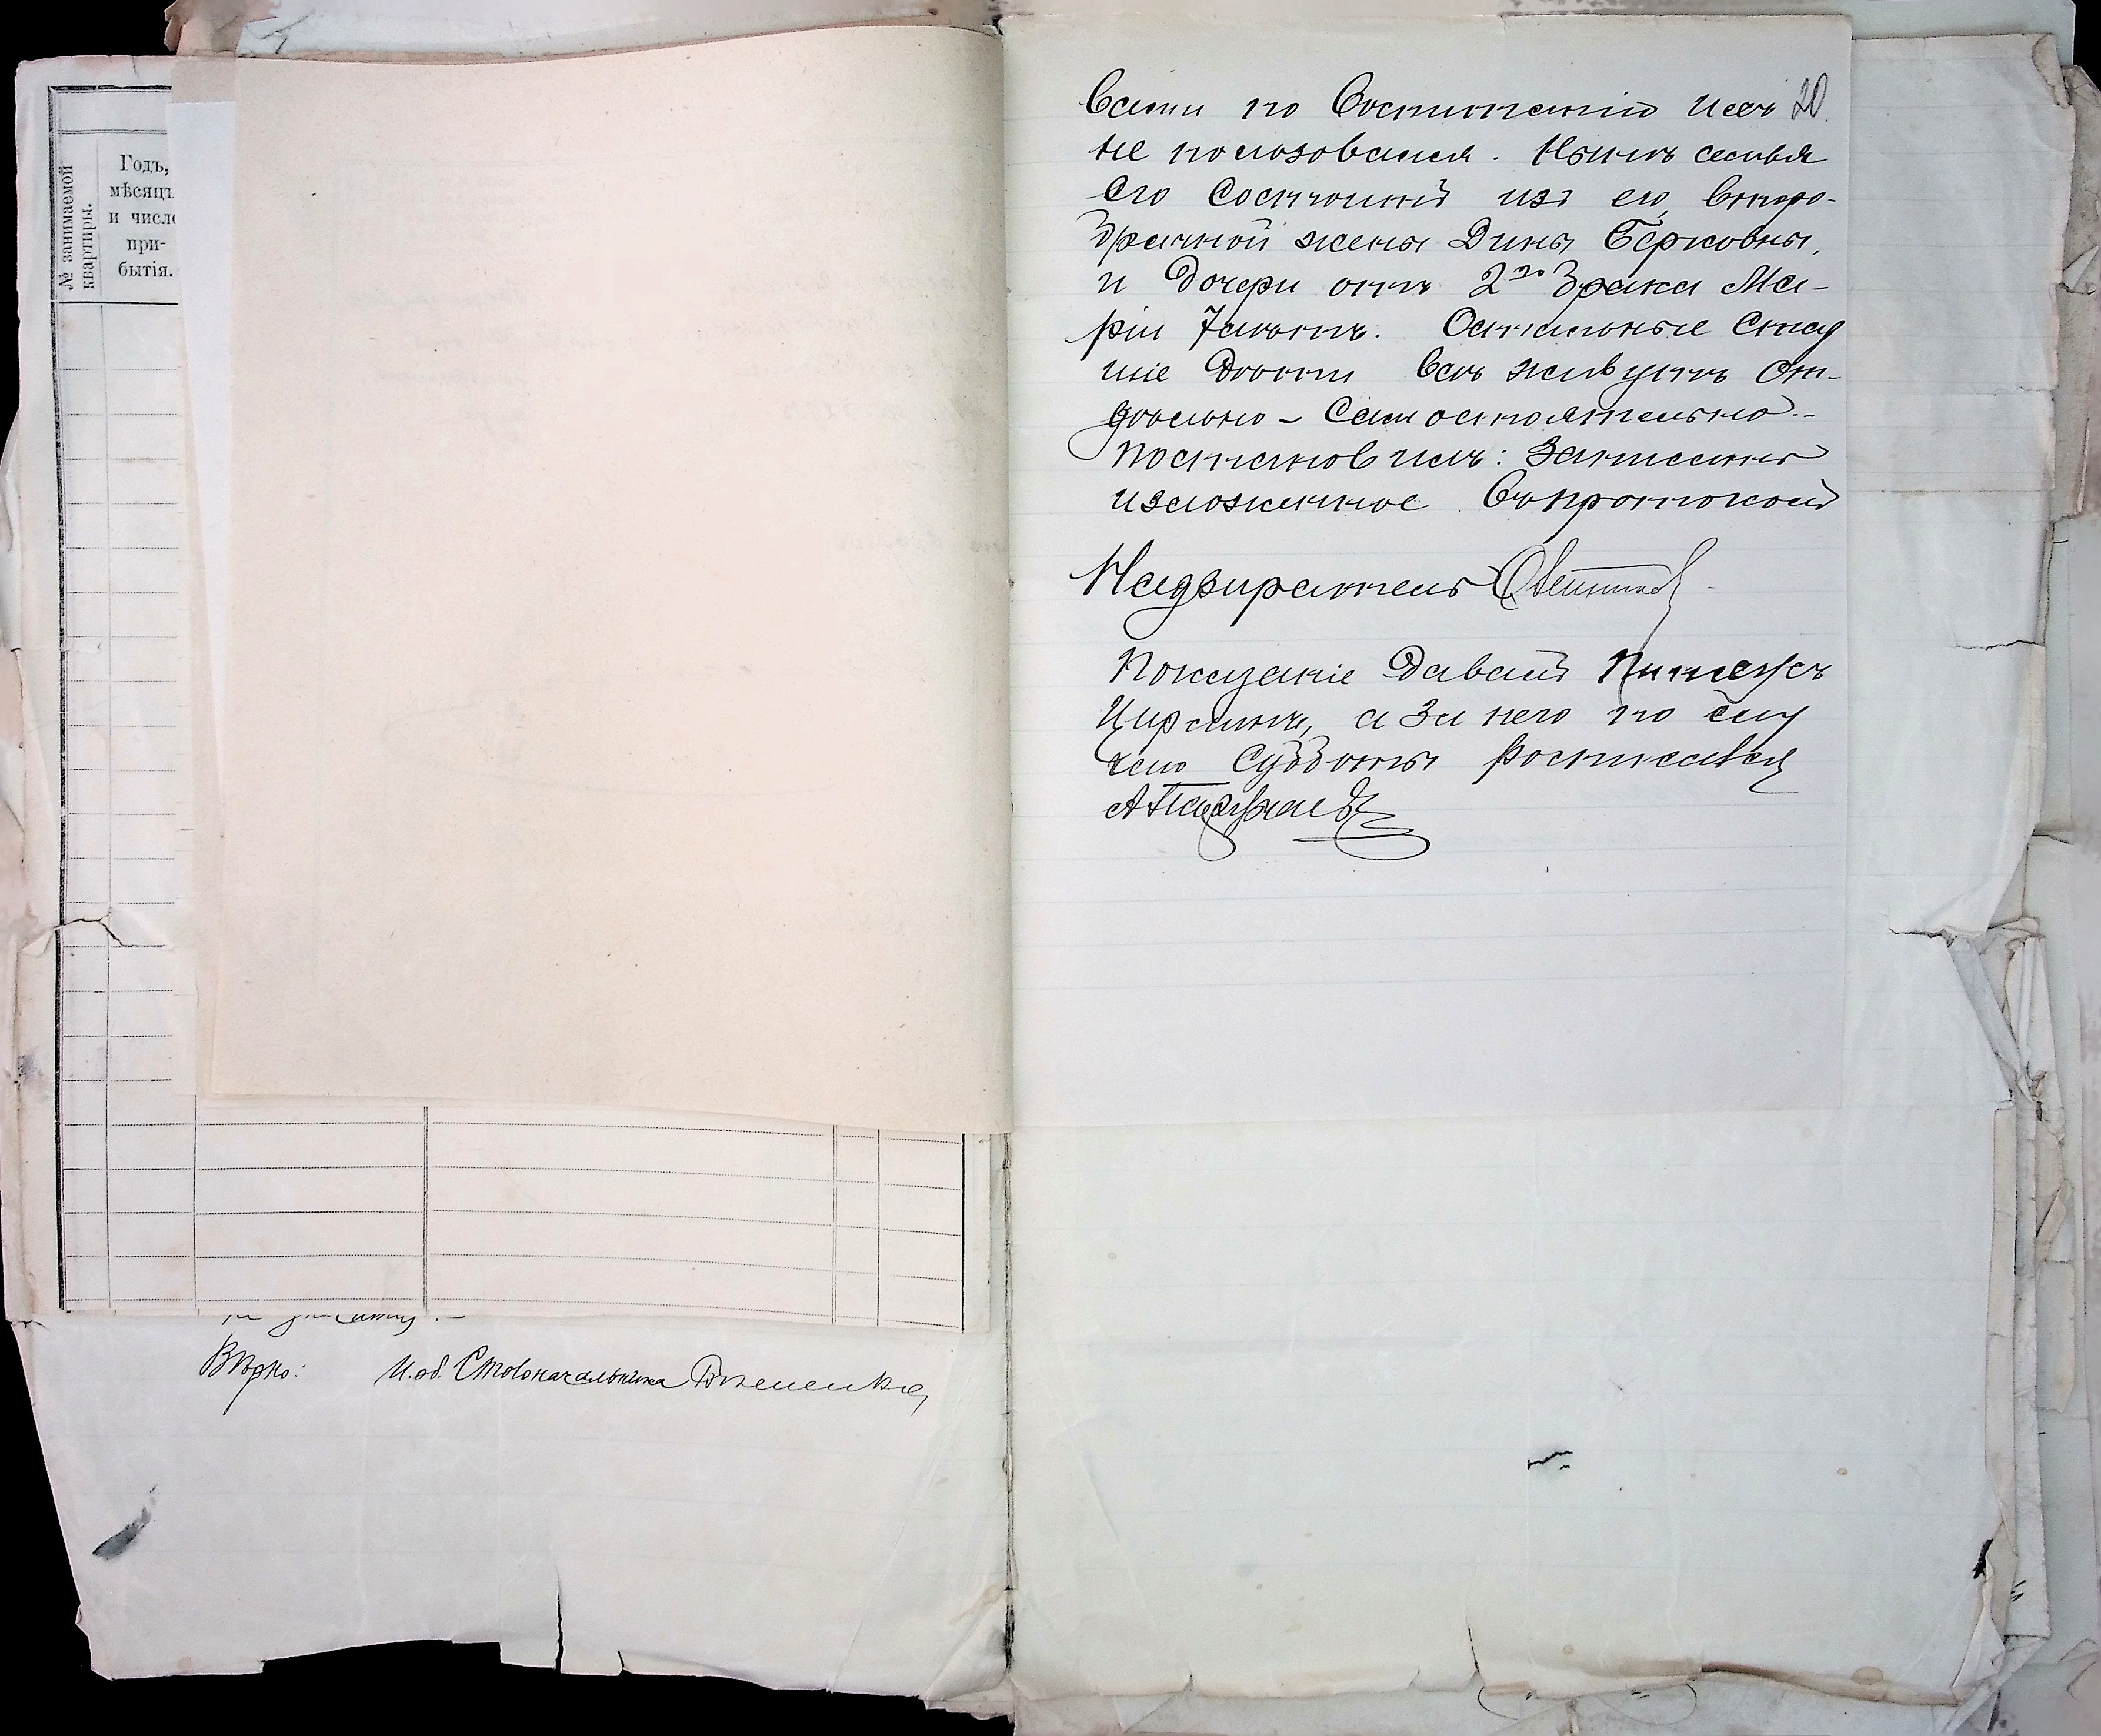 № занимаемой
квартиры.
Годъ,
мѣсяцъ
и число
при-
бытія.
Вѣрно: И. об. Столоначальника
20
вами по воспитанію ихъ
не пользовался. Нынѣ семья
его состоитъ изъ его второ-
брачной жены Дины Берковны,
и дочери отъ 2го брака Ма-
ріи 7 лѣтъ. Остальные стар
шіе дѣти всѣ живутъ от-
дѣльно – самостоятельно.-
Постановилъ: записать
изложенное въ протоколъ
Надзиратель
Показаніе давалъ Пинхусъ
Цирлинъ, а за него по слу
чаю субботы росписался